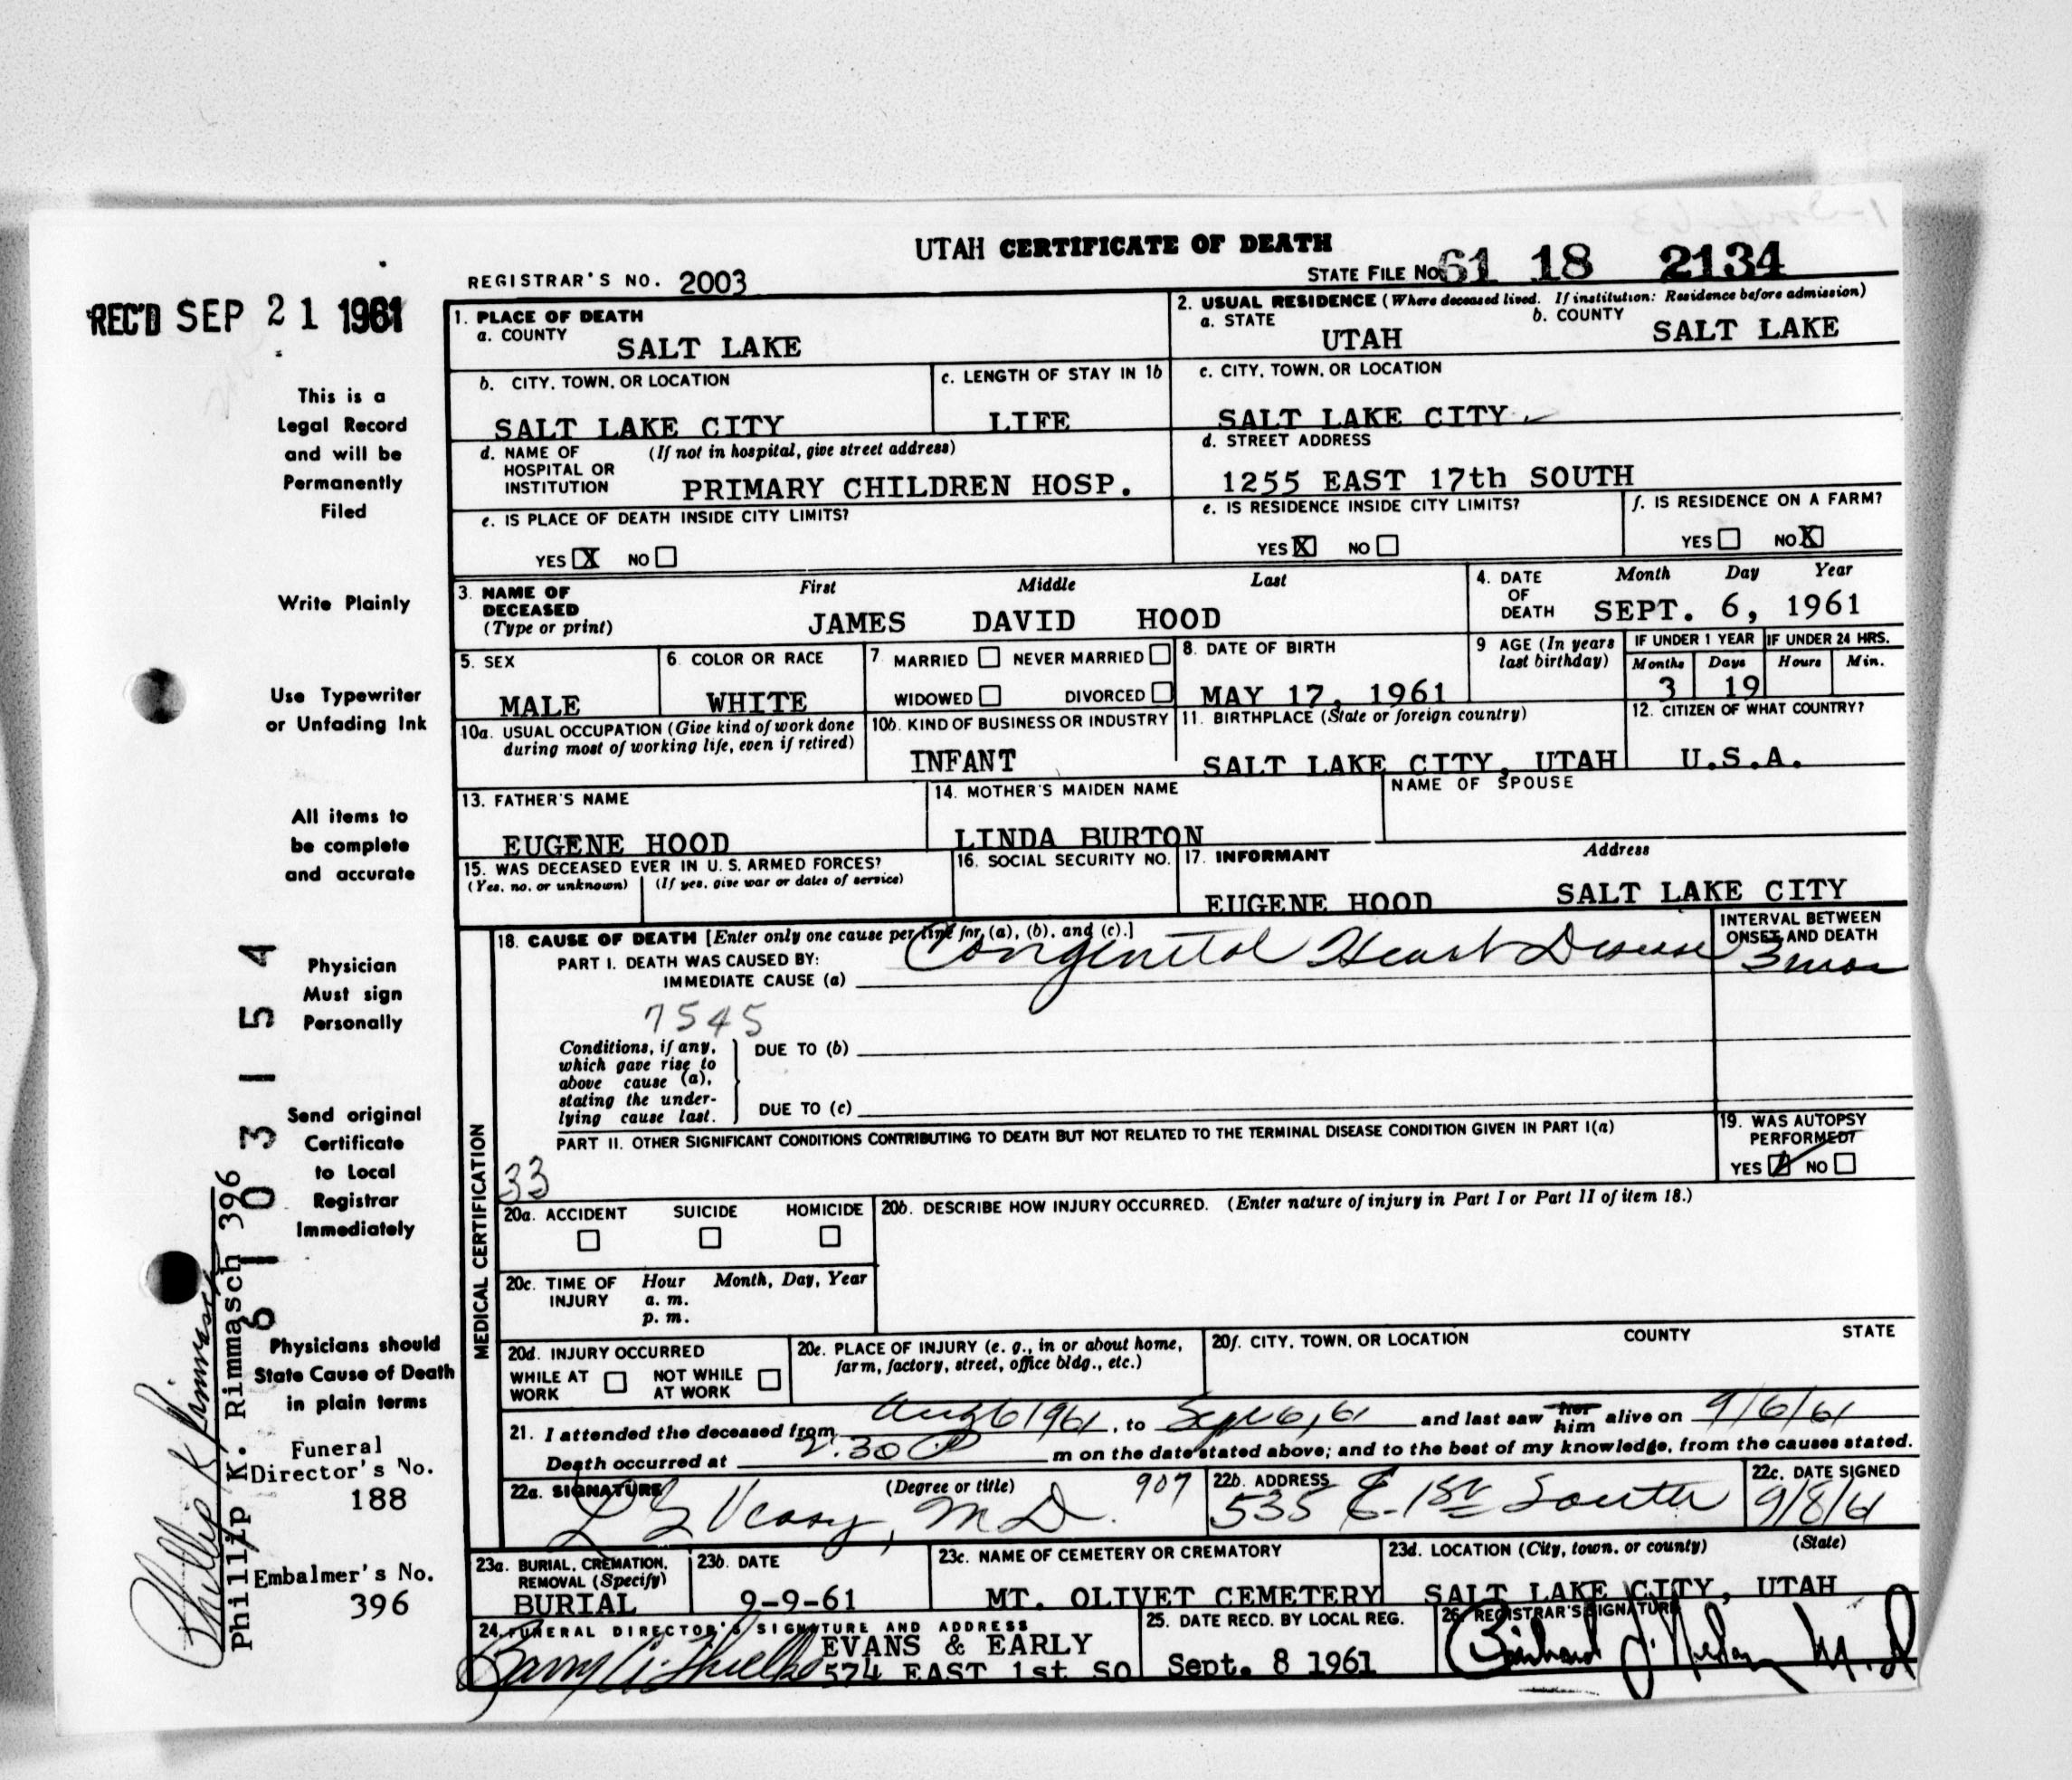 UTAH CERTIFICATE OF DEATH
REGISTRAR'S NO. 2003
STATE FILE NO. 61 18 2134
REC'D SEP 21 1961
This is a
Legal Record
and will be
Permanently
Filed
Write Plainly
Use Typewriter
or Unfading Ink
All items to
be complete
and accurate
Physician
Must sign
Personally
Send original
Certificate
to Local
Registrar
Immediately
Physicians should
State Cause of Death
in plain terms
Funeral
Director's No.
188
Embalmer's No.
396
61 03154
Phillip K. Rimmasch 396
Phillip K Rimmasch
1. PLACE OF DEATH
a. COUNTY
SALT LAKE
2. USUAL RESIDENCE (Where deceased lived. If institution: Residence before admission)
a. STATE
UTAH
b. COUNTY
SALT LAKE
b. CITY, TOWN, OR LOCATION
SALT LAKE CITY
c. LENGTH OF STAY IN 1b
LIFE
c. CITY, TOWN, OR LOCATION
SALT LAKE CITY
d. NAME OF HOSPITAL OR INSTITUTION
(If not in hospital, give street address)
PRIMARY CHILDREN HOSP.
d. STREET ADDRESS
1255 EAST 17th SOUTH
e. IS PLACE OF DEATH INSIDE CITY LIMITS?
YES X NO
e. IS RESIDENCE INSIDE CITY LIMITS?
YES X NO
f. IS RESIDENCE ON A FARM?
YES NO X
3. NAME OF DECEASED (Type or print)
First Middle Last
JAMES DAVID HOOD
4. DATE OF DEATH
Month Day Year
SEPT. 6, 1961
5. SEX
MALE
6. COLOR OR RACE
WHITE
7. MARRIED NEVER MARRIED
WIDOWED DIVORCED
8. DATE OF BIRTH
MAY 17, 1961
9 AGE (In years last birthday)
IF UNDER 1 YEAR
Months Days
3 19
IF UNDER 24 HRS.
Hours Min.
10a. USUAL OCCUPATION (Give kind of work done during most of working life, even if retired)
10b. KIND OF BUSINESS OR INDUSTRY
INFANT
11. BIRTHPLACE (State or foreign country)
SALT LAKE CITY, UTAH
12. CITIZEN OF WHAT COUNTRY?
U.S.A.
13. FATHER'S NAME
EUGENE HOOD
14. MOTHER'S MAIDEN NAME
LINDA BURTON
NAME OF SPOUSE
15. WAS DECEASED EVER IN U. S. ARMED FORCES?
(Yes, no, or unknown) (If yes, give war or dates of service)
16. SOCIAL SECURITY NO.
17. INFORMANT Address
EUGENE HOOD SALT LAKE CITY
MEDICAL CERTIFICATION
18. CAUSE OF DEATH [Enter only one cause per line for (a), (b), and (c).]
PART I. DEATH WAS CAUSED BY:
IMMEDIATE CAUSE (a) Congenital Heart Disease
INTERVAL BETWEEN ONSET AND DEATH
3 mos
7545
Conditions, if any, which gave rise to above cause (a), stating the underlying cause last.
DUE TO (b)
DUE TO (c)
PART II. OTHER SIGNIFICANT CONDITIONS CONTRIBUTING TO DEATH BUT NOT RELATED TO THE TERMINAL DISEASE CONDITION GIVEN IN PART I(a)
33
19. WAS AUTOPSY PERFORMED?
YES NO
20a. ACCIDENT SUICIDE HOMICIDE
20b. DESCRIBE HOW INJURY OCCURRED. (Enter nature of injury in Part I or Part II of item 18.)
20c. TIME OF INJURY
Hour Month, Day, Year
a. m.
p. m.
20d. INJURY OCCURRED
WHILE AT WORK NOT WHILE AT WORK
20e. PLACE OF INJURY (e. g., in or about home, farm, factory, street, office bldg., etc.)
20f. CITY, TOWN, OR LOCATION COUNTY STATE
21. I attended the deceased from Aug 6 1961, to Sept 6, 61 and last saw her him alive on 9/6/61
Death occurred at 2:30 P m on the date stated above; and to the best of my knowledge, from the causes stated.
22a. SIGNATURE (Degree or title)
L G Veasy, M D. 907
22b. ADDRESS
535 E. 1st South
22c. DATE SIGNED
9/8/61
23a. BURIAL, CREMATION, REMOVAL (Specify)
BURIAL
23b. DATE
9-9-61
23c. NAME OF CEMETERY OR CREMATORY
MT. OLIVET CEMETERY
23d. LOCATION (City, town, or county) (State)
SALT LAKE CITY, UTAH
24. FUNERAL DIRECTOR'S SIGNATURE AND ADDRESS
EVANS & EARLY
574 EAST 1st SO
25. DATE RECD. BY LOCAL REG.
Sept. 8 1961
26. REGISTRAR'S SIGNATURE
M.D